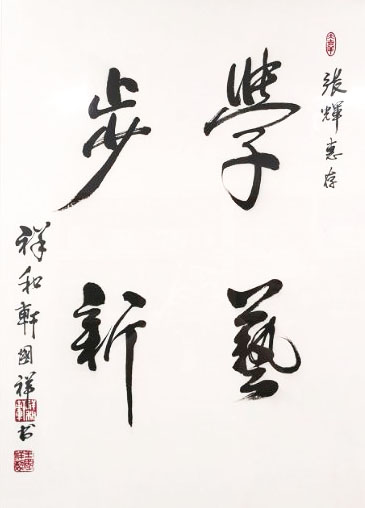 張輝惠存
學藝
步新
祥和軒國祥书